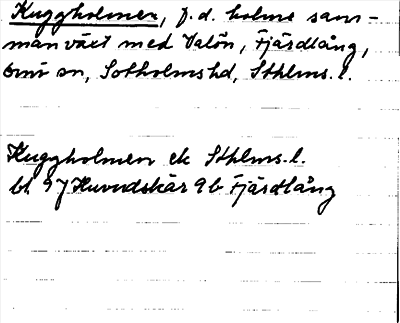 Kuggholmen, f.d. holme sam-
manväxt med Valön, Fjärdlång,
Ornö sn, Sotholms hd, Sthlms. l.
Kuggholmen ek Sthlms. l.
bl 97 Huvudskär 9b Fjärdlång